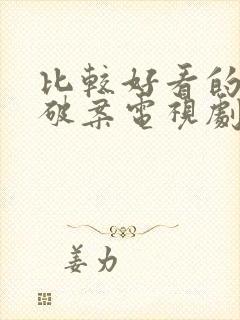 比較好看的
破案電視劇
姜力